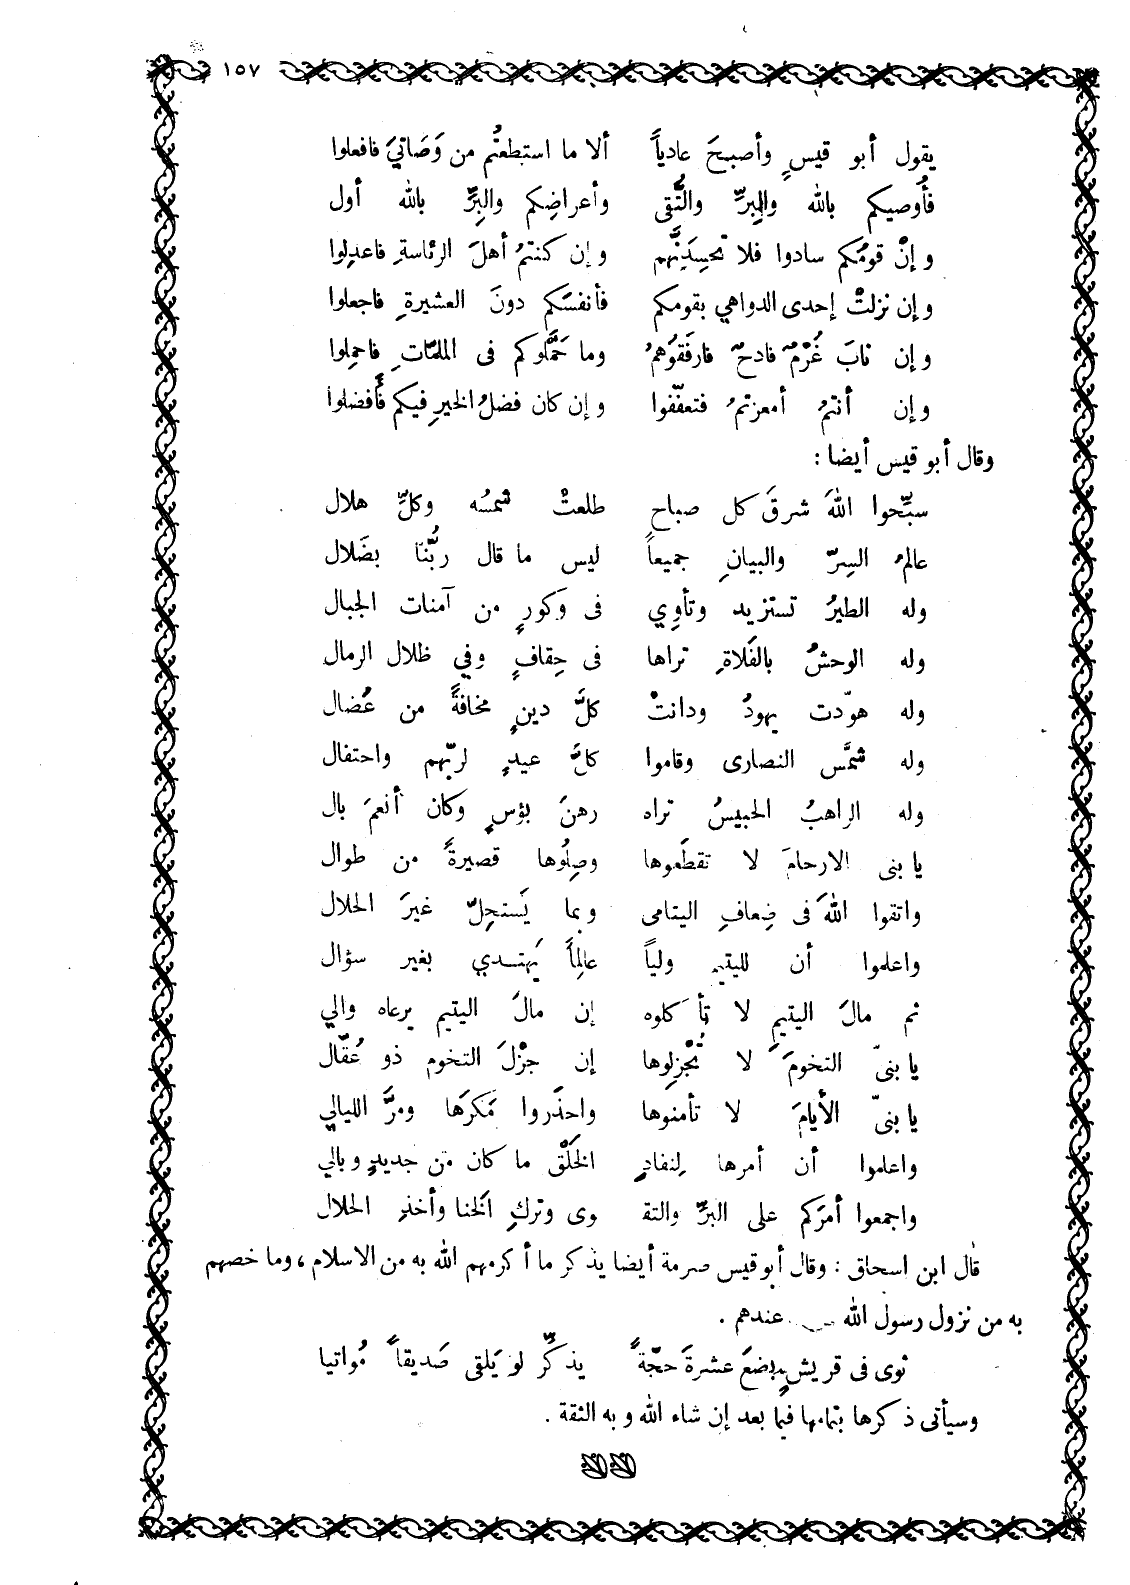 ١٥٧
يقول أبو قيسٍ وأصبحَ عادياً ألا ما استطعتُم من وَصَاتيَ فافعلوا
فأُوصيكم بالله والبرِّ والتُّقى وأعراضِكم والبِرِّ بالله أول
وإنْ قومُكم سادوا فلا تحسِدَنَّهم وإن كنتمُ أهلَ الرئاسةِ فاعدِلوا
وإن نزلتْ إحدى الدواهي بقومكم فأنفسَكم دونَ العشيرةِ فاجعلوا
وإن نابَ غُرْمٌ فادحٌ فارفقوهمُ وما حَمَّلوكم فى الملمّاتِ فاحمِلوا
وإن أنتمُ أمعزتمُ فتعفّفوا وإن كان فضلُ الخيرِ فيكم فأَفضلوا
وقال أبو قيس أيضا :
سبِّحوا اللهَ شرقَ كل صباحٍ طلعتْ شمسُه وكلّ هلال
عالمُ السِرّ والبيانِ جميعاً ليس ما قال ربُّنا بضَلال
وله الطيرُ تستزيد وتأوِي فى وَكورٍ من آمنات الجبال
وله الوحشُ بالفَلاةِ تراها فى حِقافٍ وفي ظلال الرمال
وله هوّدت يهودُ ودانتْ كلَّ دينٍ مخافةً من عُضال
وله شمَّس النصارى وقاموا كلَّ عيدٍ لربّهم واحتفال
وله الراهبُ الحبيسُ تراه رهنَ بؤسٍ وكان أنعمَ بال
يا بنى الارحامَ لا تقطَعوها وصِلُوها قصيرةً من طوال
واتقوا اللهَ فى ضِعافِ اليتامى وبما يَستحِلّ غيرَ الحلال
واعلموا أن لليتيم ولياً عالِماً يَهتدي بغير سؤال
ثم مالَ اليتيمِ لا تأكلوه إن مالَ اليتيم يرعاه والي
يا بنىّ التخومَ لا تُجْزِلوها إن جزْلَ التخوم ذو عُقّال
يا بنىّ الأيامَ لا تأمنوها واحذَروا مَكرَها ومرَّ الليالي
واعلموا أن أمرها لِنفادِ الخَلْق ما كان من جديدٍ وبالي
واجمعوا أمرَكم على البرِّ والتقـ ـوى وتركِ الخنا وأخذِ الحلال
قال ابن اسحاق : وقال أبو قيس صرمة أيضا يذكر ما أكرمهم الله به من الاسلام ، وما خصهم
به من نزول رسول الله عندهم .
ثوى فى قريشٍ بضعَ عشرةَ حجّةً يذكِّر لو يَلقى صَديقاً مُواتيا
وسيأتى ذكرها بتمامها فيما بعد إن شاء الله وبه الثقة .